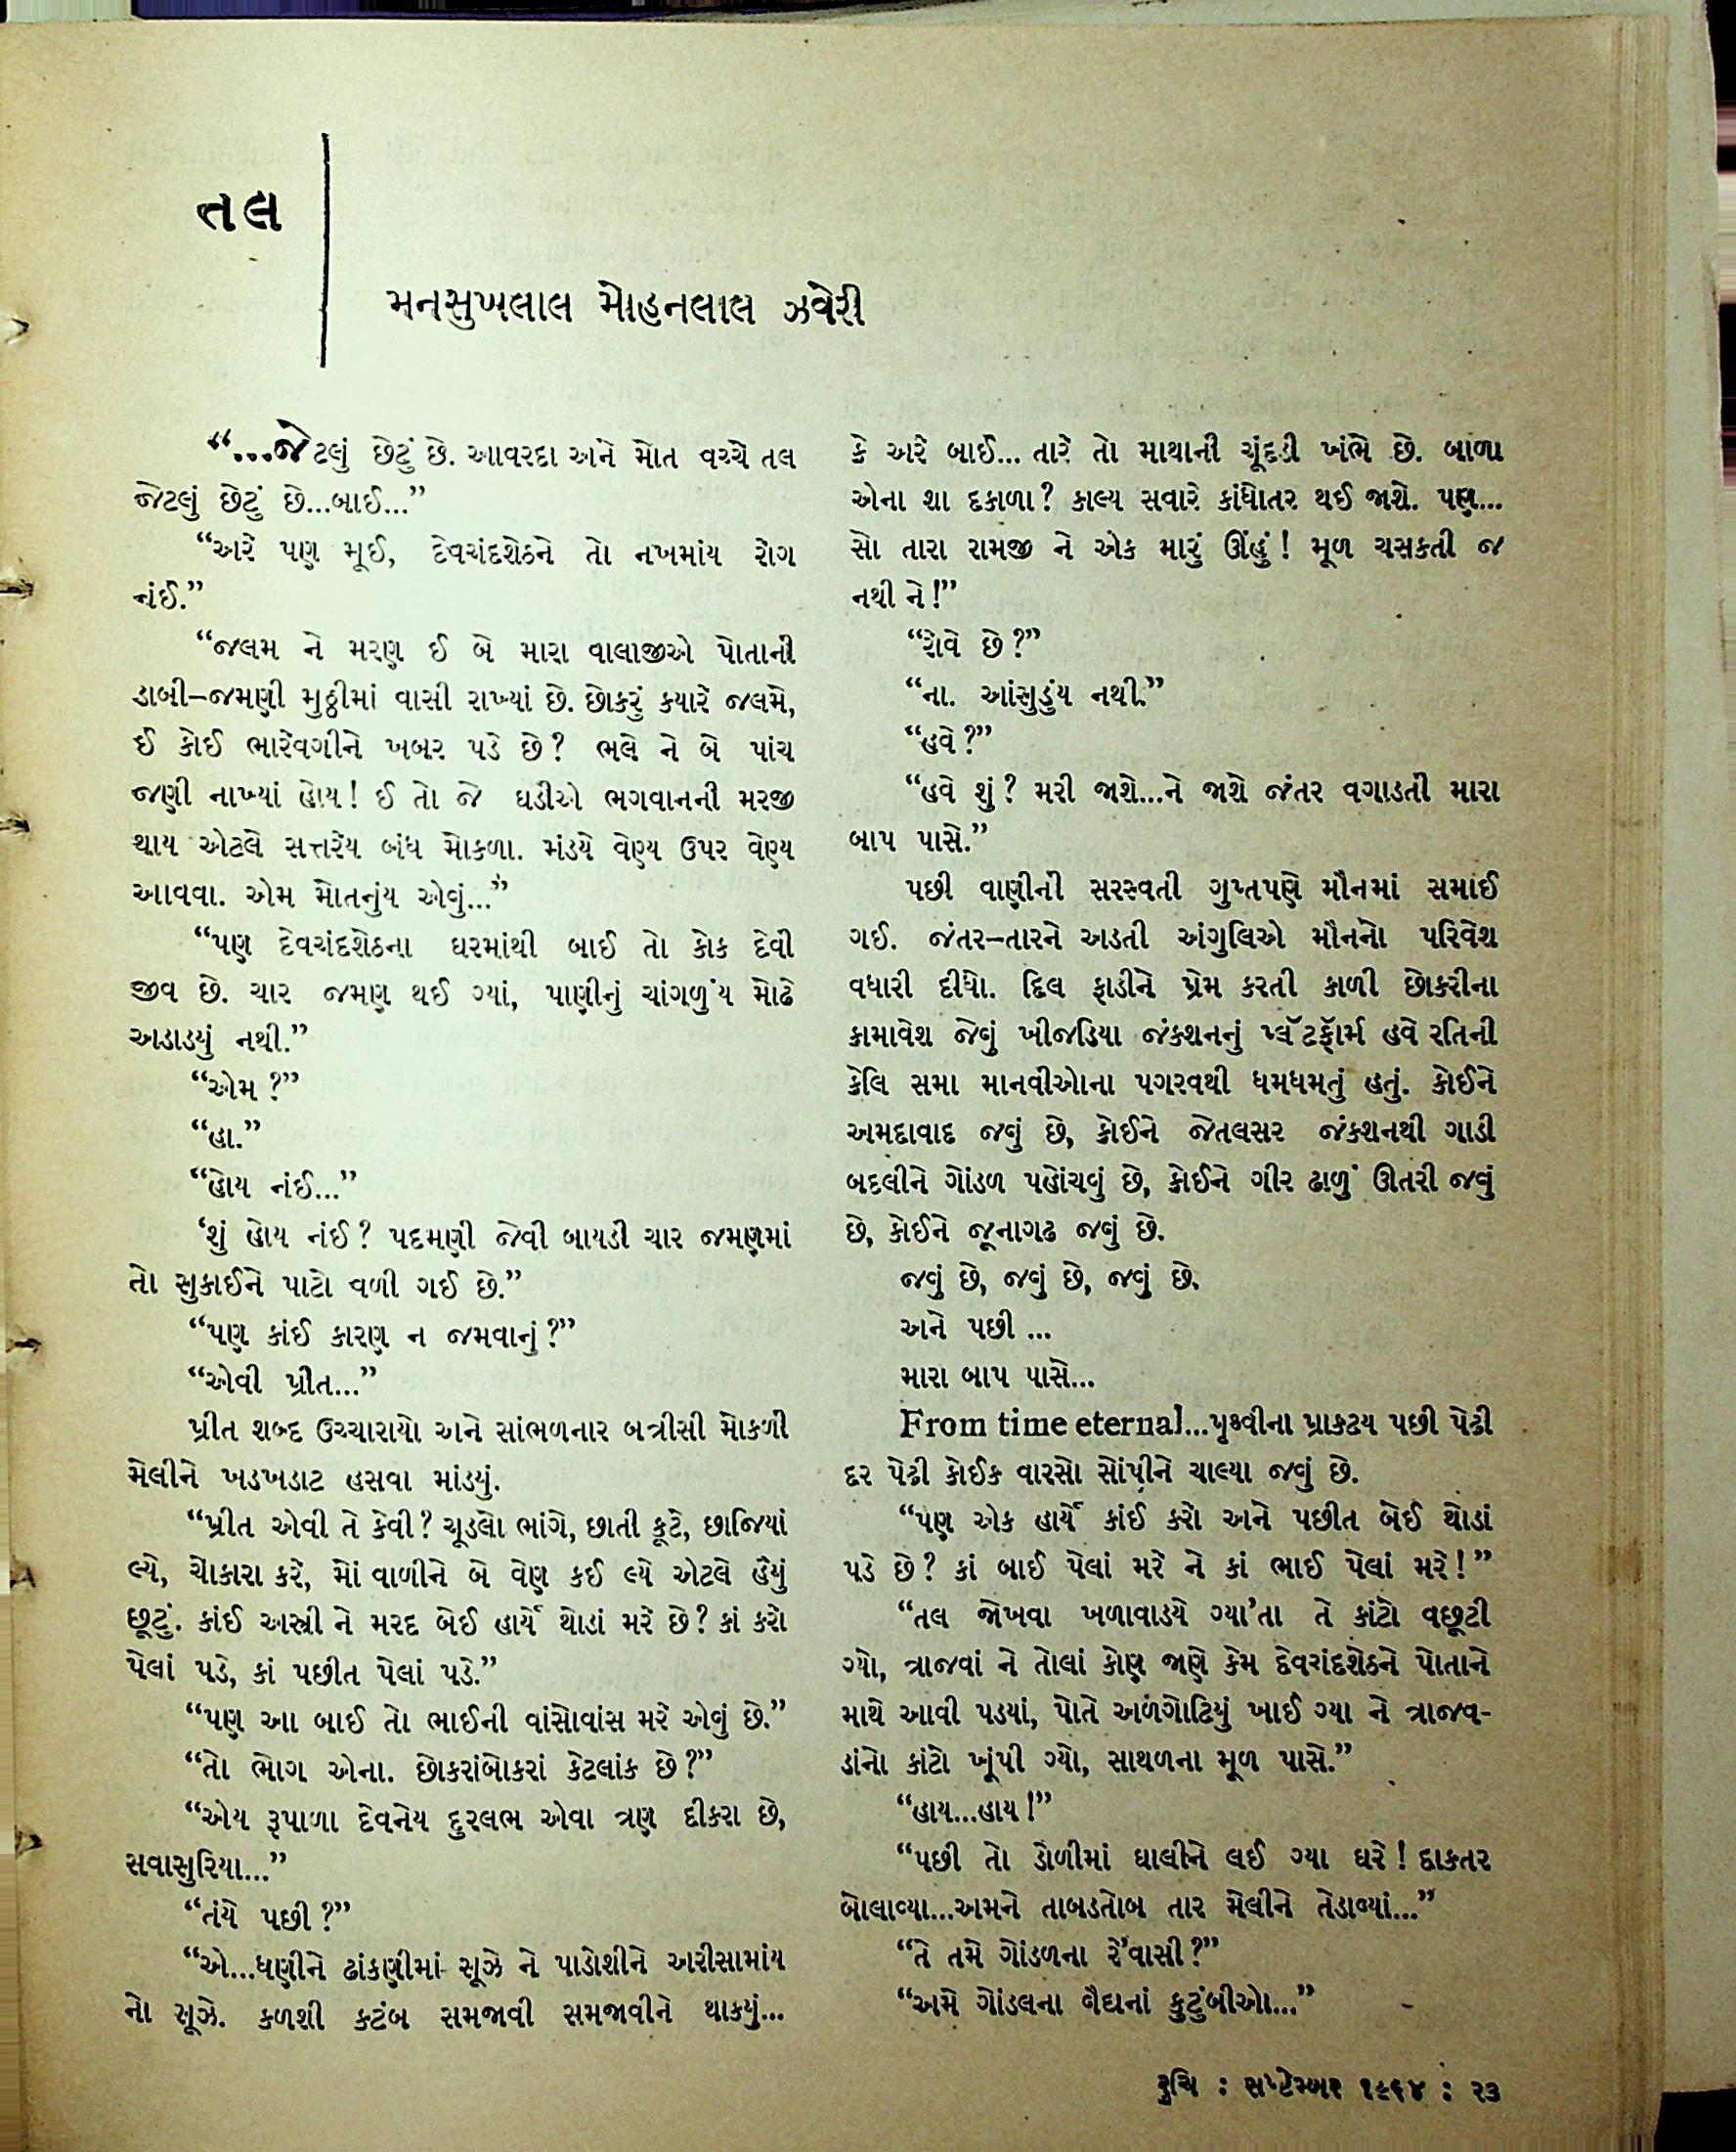 તલ
મનસુખલાલ મોહનલાલ ઝવેરી
“...જેટલું છેટું છે. આવરદા અને મોત વચ્ચે તલ
જેટલું છેટું છે...બાઈ...”
“અરે પણ મૂઈ, દેવચંદશેઠને તો નખમાંય રોગ
નંઈ.”
“જલમ ને મરણ ઈ બે મારા વાલાજીએ પોતાની
ડાબી–જમણી મુઠ્ઠીમાં વાસી રાખ્યાં છે. છોકરું કયારે જલમે,
ઈ કોઈ ભારેવગીને ખબર પડે છે? ભલે ને બે પાંચ
જણી નાખ્યાં હોય! ઈ તો જે ઘડીએ ભગવાનની મરજી
થાય એટલે સત્તરેય બંધ મોકળા. મંડયે વેણ્ય ઉપર વેણ્ય
આવવા. એમ મોતનુંય એવું...”
“પણ દેવચંદશેઠના ઘરમાંથી બાઈ તો કોક દેવી
જીવ છે. ચાર જમણ થઈ ગ્યાં, પાણીનું ચાંગળુંય મોઢે
અડાડયું નથી.”
“એમ ?”
“હા.”
“હોય નંઈ...”
‘શું હોય નંઈ? પદમણી જેવી બાયડી ચાર જમણમાં
તો સુકાઈને પાટો વળી ગઈ છે.”
“પણ કાંઈ કારણ ન જમવાનું?”
“એવી પ્રીત...”
પ્રીત શબ્દ ઉચ્ચારાયો અને સાંભળનાર બત્રીસી મોકળી
મેલીને ખડખડાટ હસવા માંડયું.
“પ્રીત એવી તે કેવી? ચૂડલો ભાંગે, છાતી કૂટે, છાજિયાં
લ્યે, ચોકારા કરે, મોં વાળીને બે વેણ કઈ લ્યે એટલે હૈયું
છૂટું. કાંઈ અસ્ત્રી ને મરદ બેઈ હાર્યે થોડાં મરે છે? કાં કરો
પેલાં પડે, કાં પછીત પેલાં પડે.”
“પણ આ બાઈ તો ભાઈની વાંસોવાંસ મરે એવું છે.”
“તો ભોગ એના. છોકરાંબોકરાં કેટલાંક છે?”
“એય રૂપાળા દેવનેય દુરલભ એવા ત્રણ દીકરા છે,
સવાસુરિયા...”
“તંયે પછી?”
“એ...ધણીને ઢાંકણીમાં સૂઝે ને પાડોશીને અરીસામાંય
નો સૂઝે. કળશી કટંબ સમજાવી સમજાવીને થાકયું...
કે અરે બાઈ... તારે તો માથાની ચૂંદડી ખંભે છે. બાળા
એના શા દકાળા? કાલ્ય સવારે કાંધોતર થઈ જાશે. પણ...
સો તારા રામજી ને એક મારું ઊંહું! મૂળ ચસકતી જ
નથી ને!”
“રોવે છે?”
“ના. આંસુડુંય નથી.”
“હવે?”
“હવે શું? મરી જાશે...ને જાશે જંતર વગાડતી મારા
બાપ પાસે.”
પછી વાણીની સરસ્વતી ગુપ્તપણે મૌનમાં સમાઈ
ગઈ. જંતર–તારને અડતી અંગુલિએ મૌનનો પરિવેશ
વધારી દીધો. દિલ ફાડીને પ્રેમ કરતી કાળી છોકરીના
કામાવેશ જેવું ખીજડિયા જંકશનનું પ્લૅટફૉર્મ હવે રતિની
કેલિ સમા માનવીઓના પગરવથી ધમધમતું હતું. કોઈને
અમદાવાદ જવું છે, કોઈને જેતલસર જંકશનથી ગાડી
બદલીને ગોંડળ પહોંચવું છે, કોઈને ગીર ઢાળું ઊતરી જવું
છે, કોઈને જૂનાગઢ જવું છે.
જવું છે, જવું છે, જવું છે.
અને પછી ...
મારા બાપ પાસે...
From time eternal...પૃથ્વીના પ્રાકટય પછી પેઢી
દર પેઢી કોઈક વારસો સોંપીને ચાલ્યા જવું છે.
“પણ એક હાર્યે કાંઈ કરો અને પછીત બેઈ થોડાં
પડે છે? કાં બાઈ પેલાં મરે ને કાં ભાઈ પેલાં મરે!”
“તલ જોખવા ખળાવાડયે ગ્યા’તા તે કાંટો વછૂટી
ગ્યો, ત્રાજવાં ને તોલાં કોણ જાણે કેમ દેવરાંદશેઠને પોતાને
માથે આવી પડયાં, પોતે અળગોટિયું ખાઈ ગ્યા ને ત્રાજવ-
ડાંનો કાંટો ખૂંપી ગ્યો, સાથળના મૂળ પાસે.”
“હાય...હાય!”
“પછી તો ડોળીમાં ઘાલીને લઈ ગ્યા ઘરે! દાકતર
બોલાવ્યા...અમને તાબડતોબ તાર મેલીને તેડાવ્યાં...”
“તે તમે ગોંડળના રે’વાસી?”
“અમે ગોંડલના વૈદાનાં કુટુંબીઓ...”
રુચિ : સપ્ટેમ્બર ૧૯૬૪ : ૨૩